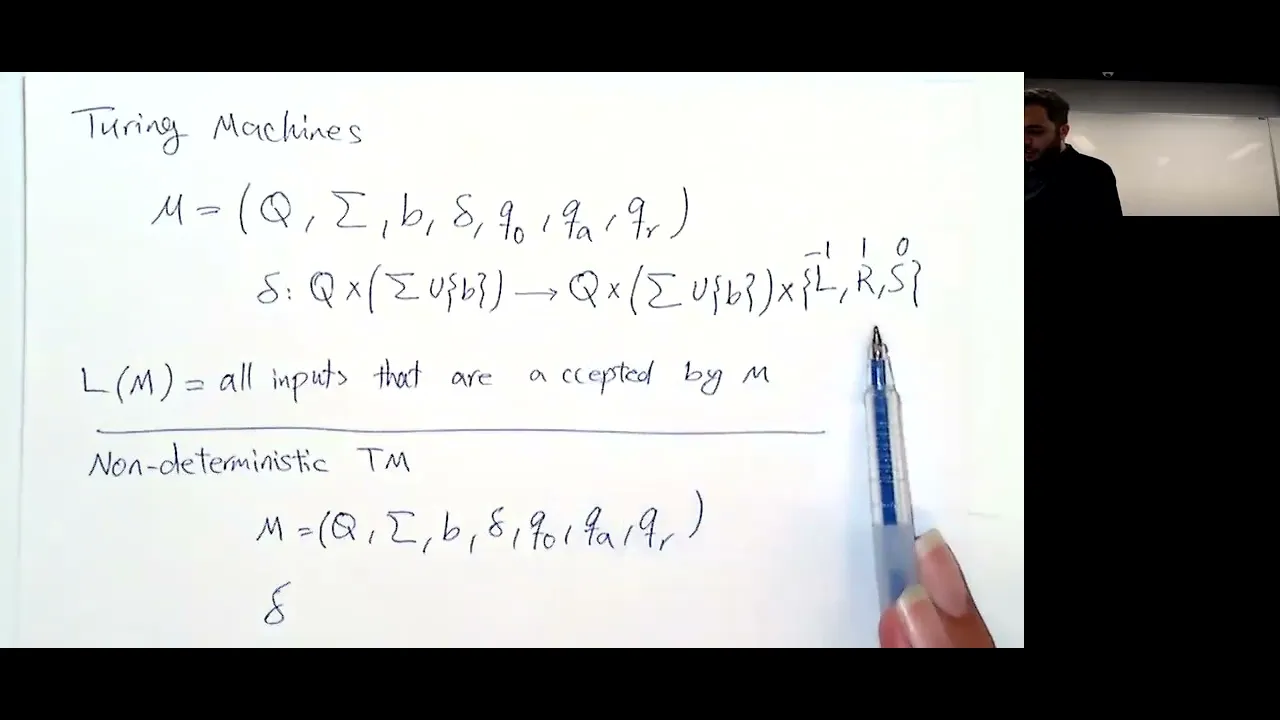 Turing Machines
M = (Q, Σ, b, δ, q₀, qₐ, qᵣ)
-1 1 0
δ: Q × (Σ ∪ {b}) → Q × (Σ ∪ {b}) × {L, R, S}
L(M) = all inputs that are accepted by M
Non-deterministic TM
M = (Q, Σ, b, δ, q₀, qₐ, qᵣ)
δ